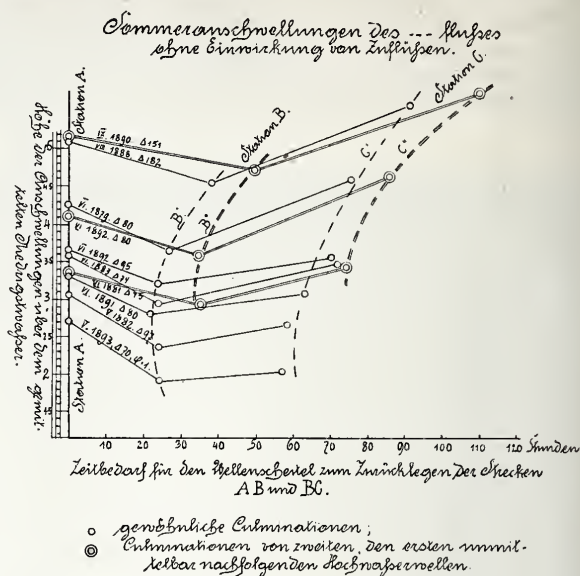 Sommeranschwellungen des --- flußes
ohne Einwirkung von Zuflüßen.
Station A.
Station B.
Station C.
Höhe der Anschwellungen über dem gemit-
telten Niedergstwaßer.
IX. 1890. Δ 151
VIII. 1888. Δ 182
VI. 1879. Δ 80
VI. 1892. Δ 80
VI. 1892. Δ 95
VI. 1883. Δ 74
VI 1881. Δ 75
VI. 1891. Δ 80
V 1882. Δ 93
V. 1893, Δ 70, φ.1.
B'
B"
C'
C"
5
4.5
4
3.5
3
2.5
2
1.5
Station A.
10 20 30 40 50 60 70 80 90 100 110 120 Stunden
Zeitbedarf für den Wellenscheitel zum Zurücklegen der Strecken
AB und BC.
gewöhnliche Culminationen;
Culminationen von zweiten, den ersten unmit-
telbar nachfolgenden Hochwaßerwellen.